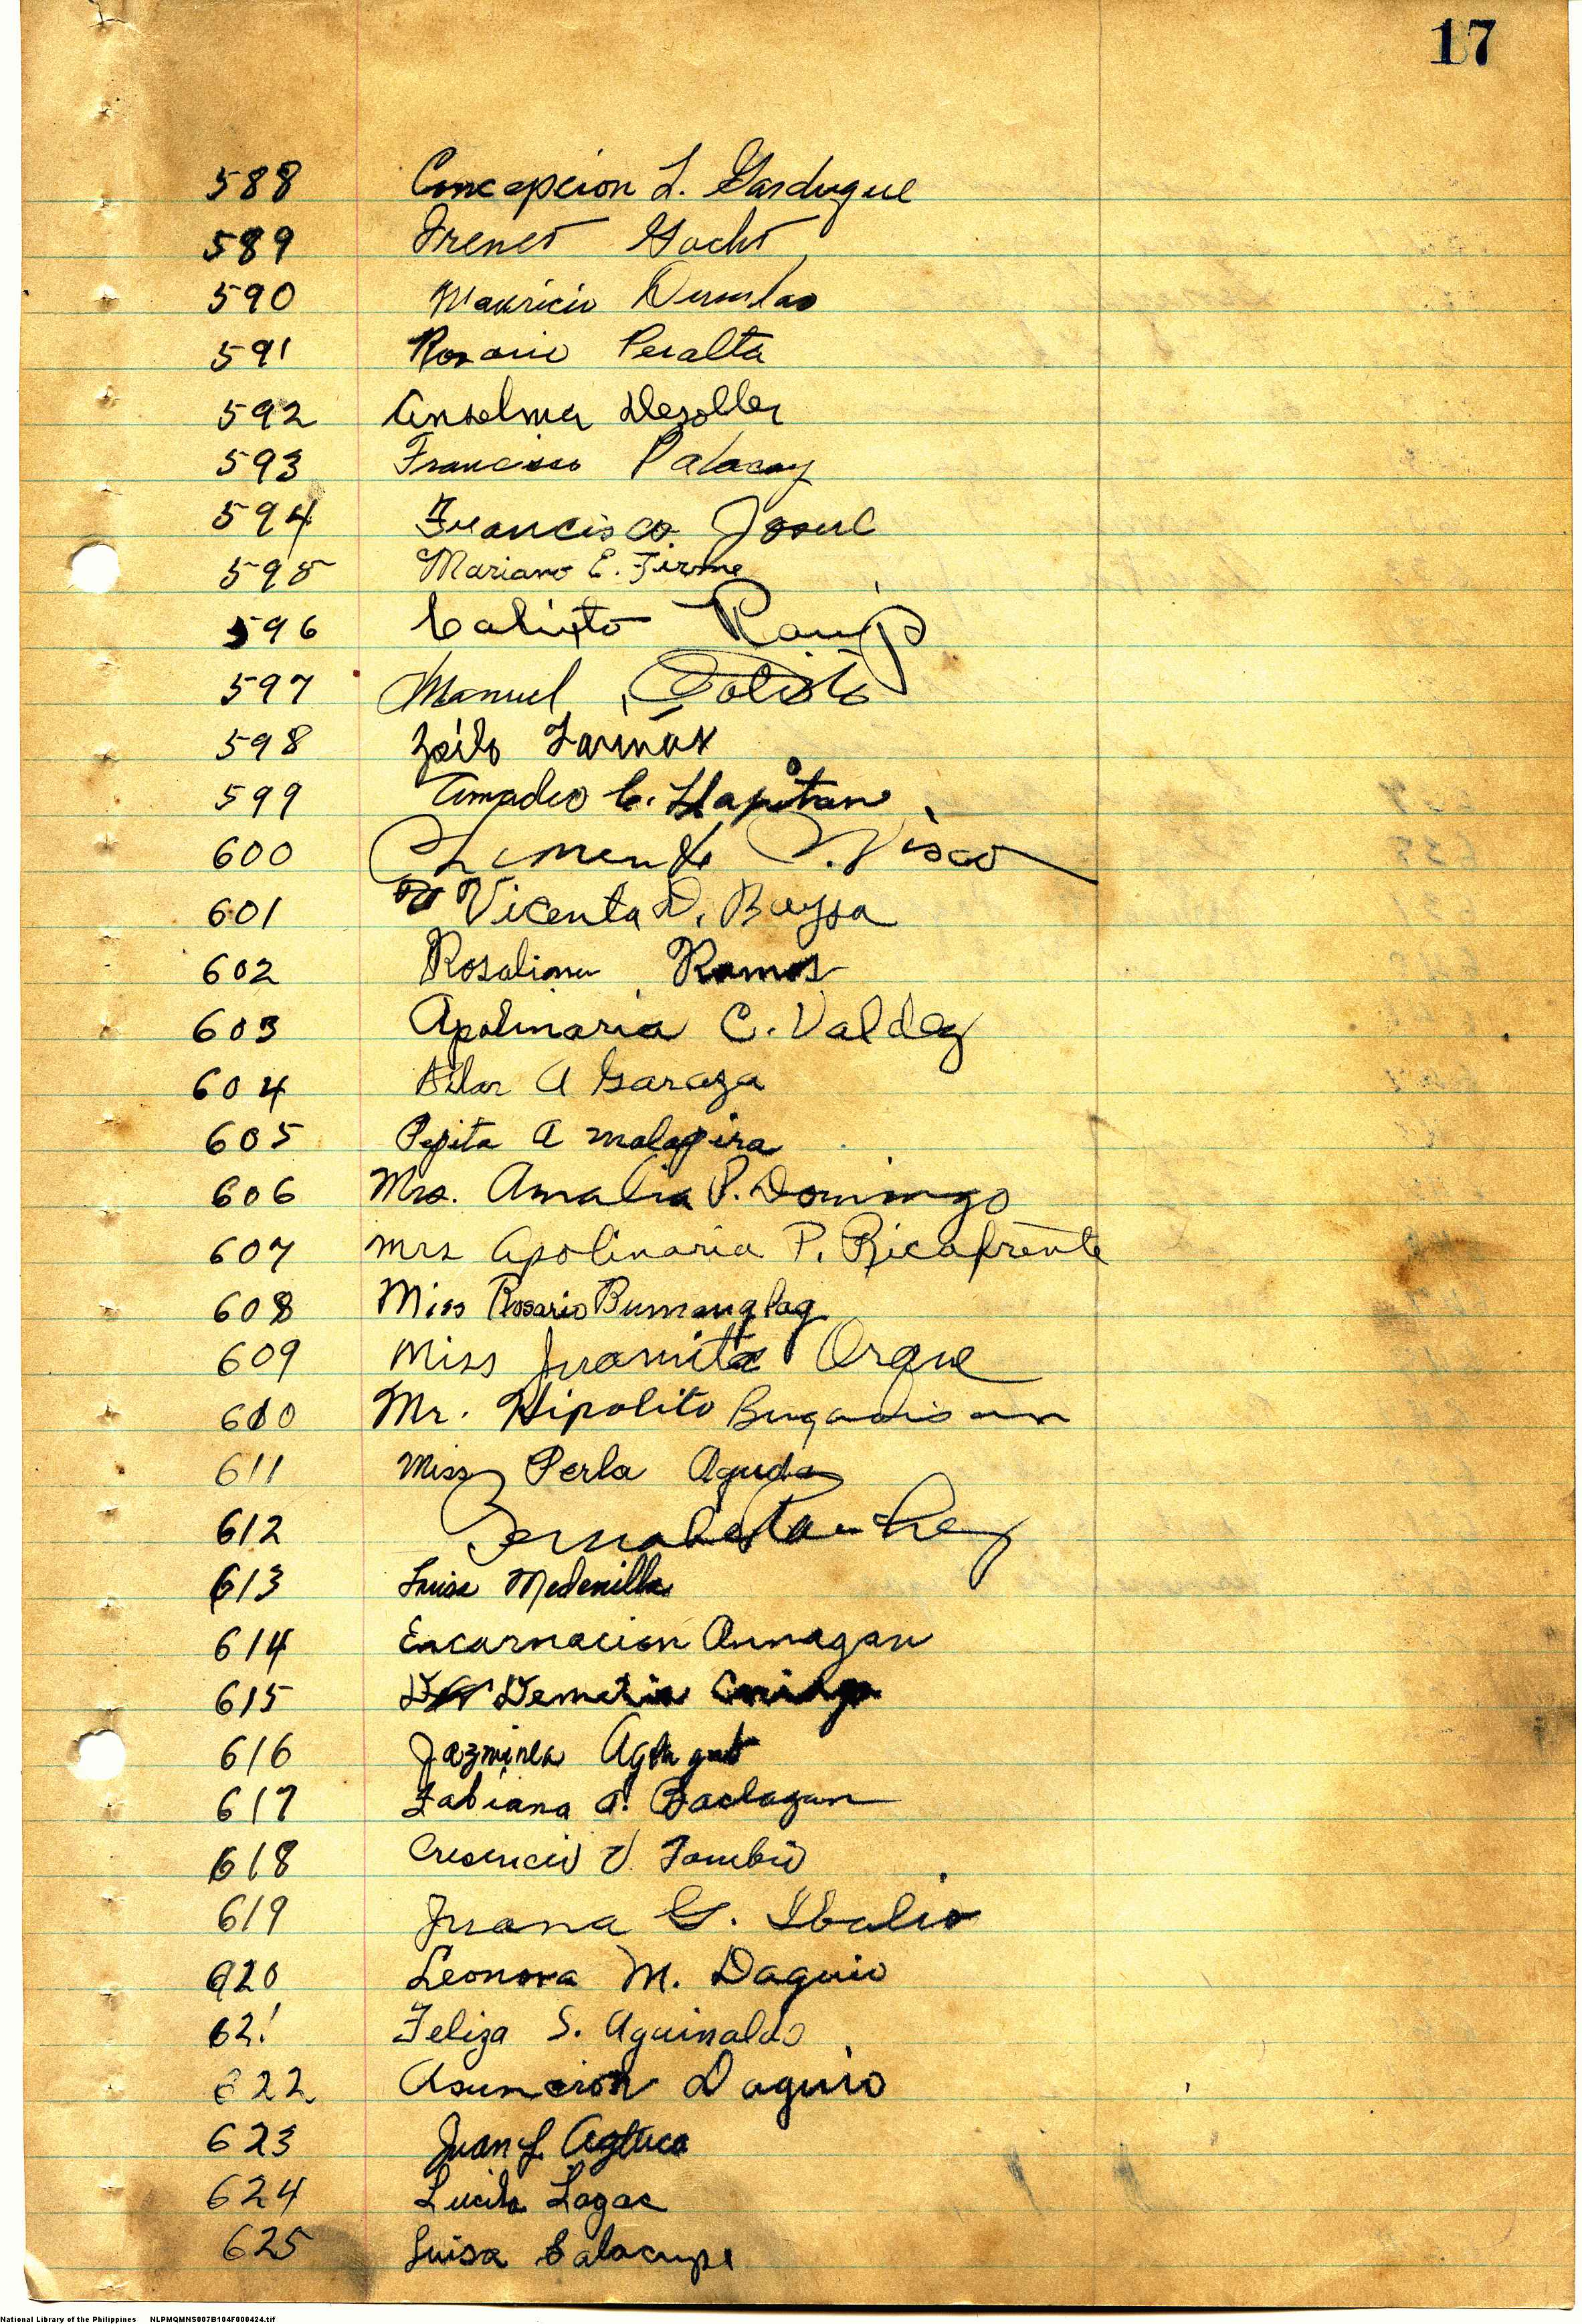 17
588 Concepcion L. Gardugue
589
590 Mauricio
591 Rosario Peralta
592 Anselma
593 Francisco Palacay
594 Francisca
595 Mariano E. Firme
596 Calixto
597 Manuel
598 Zoilo Farinas
599 Amadeo C. Llapitan
600 Clemente Visco
601 Vicenta D. Baysa
602 Rosalina Ramos
603 Apolinaria C. Valdez
604 Pilar A Garaza
605 Pepita A Malapira
606 Mrs. Amalia P. Domingo
607 Mrs Apolinaria P. Ricafrente
608 Miss Rosario Bumanglag
609 Miss Juanita Orque
610 Mr. Hipolito Bugaoisan
611 Miss Perla Aguda
612 Bernabe
613 Luisa Medenilla
614 Encarnacion Annagan
615 Demetria
616 Jazminea Agtagut
617 Fabiana A. Baclagan
618 Cresencio V.
619 Juana G. Ibalio
620 Leonora M. Daguio
621 Feliza S. Aguinaldo
622 Asuncion Daguio
623 Juan L. Agtuca
624 Lucila Lagac
625 Luisa Calacupe
National Library of the Philippines NLPMQMNS007B104F000424.tif